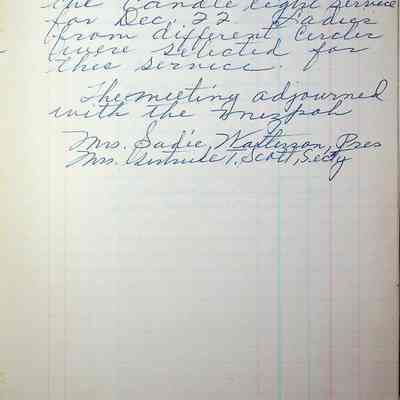 the Candle light service
for Dec. 22 Ladies
from different Circles
were selected for
this service.
The meeting adjourned
with the mizpah
Mrs. Sadie, Pres
Mrs. Gertrude T. Scott, Sec'y